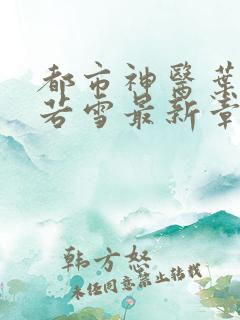 都市神醫葉
若雪最新章
韩方怒
未经同意禁止转载